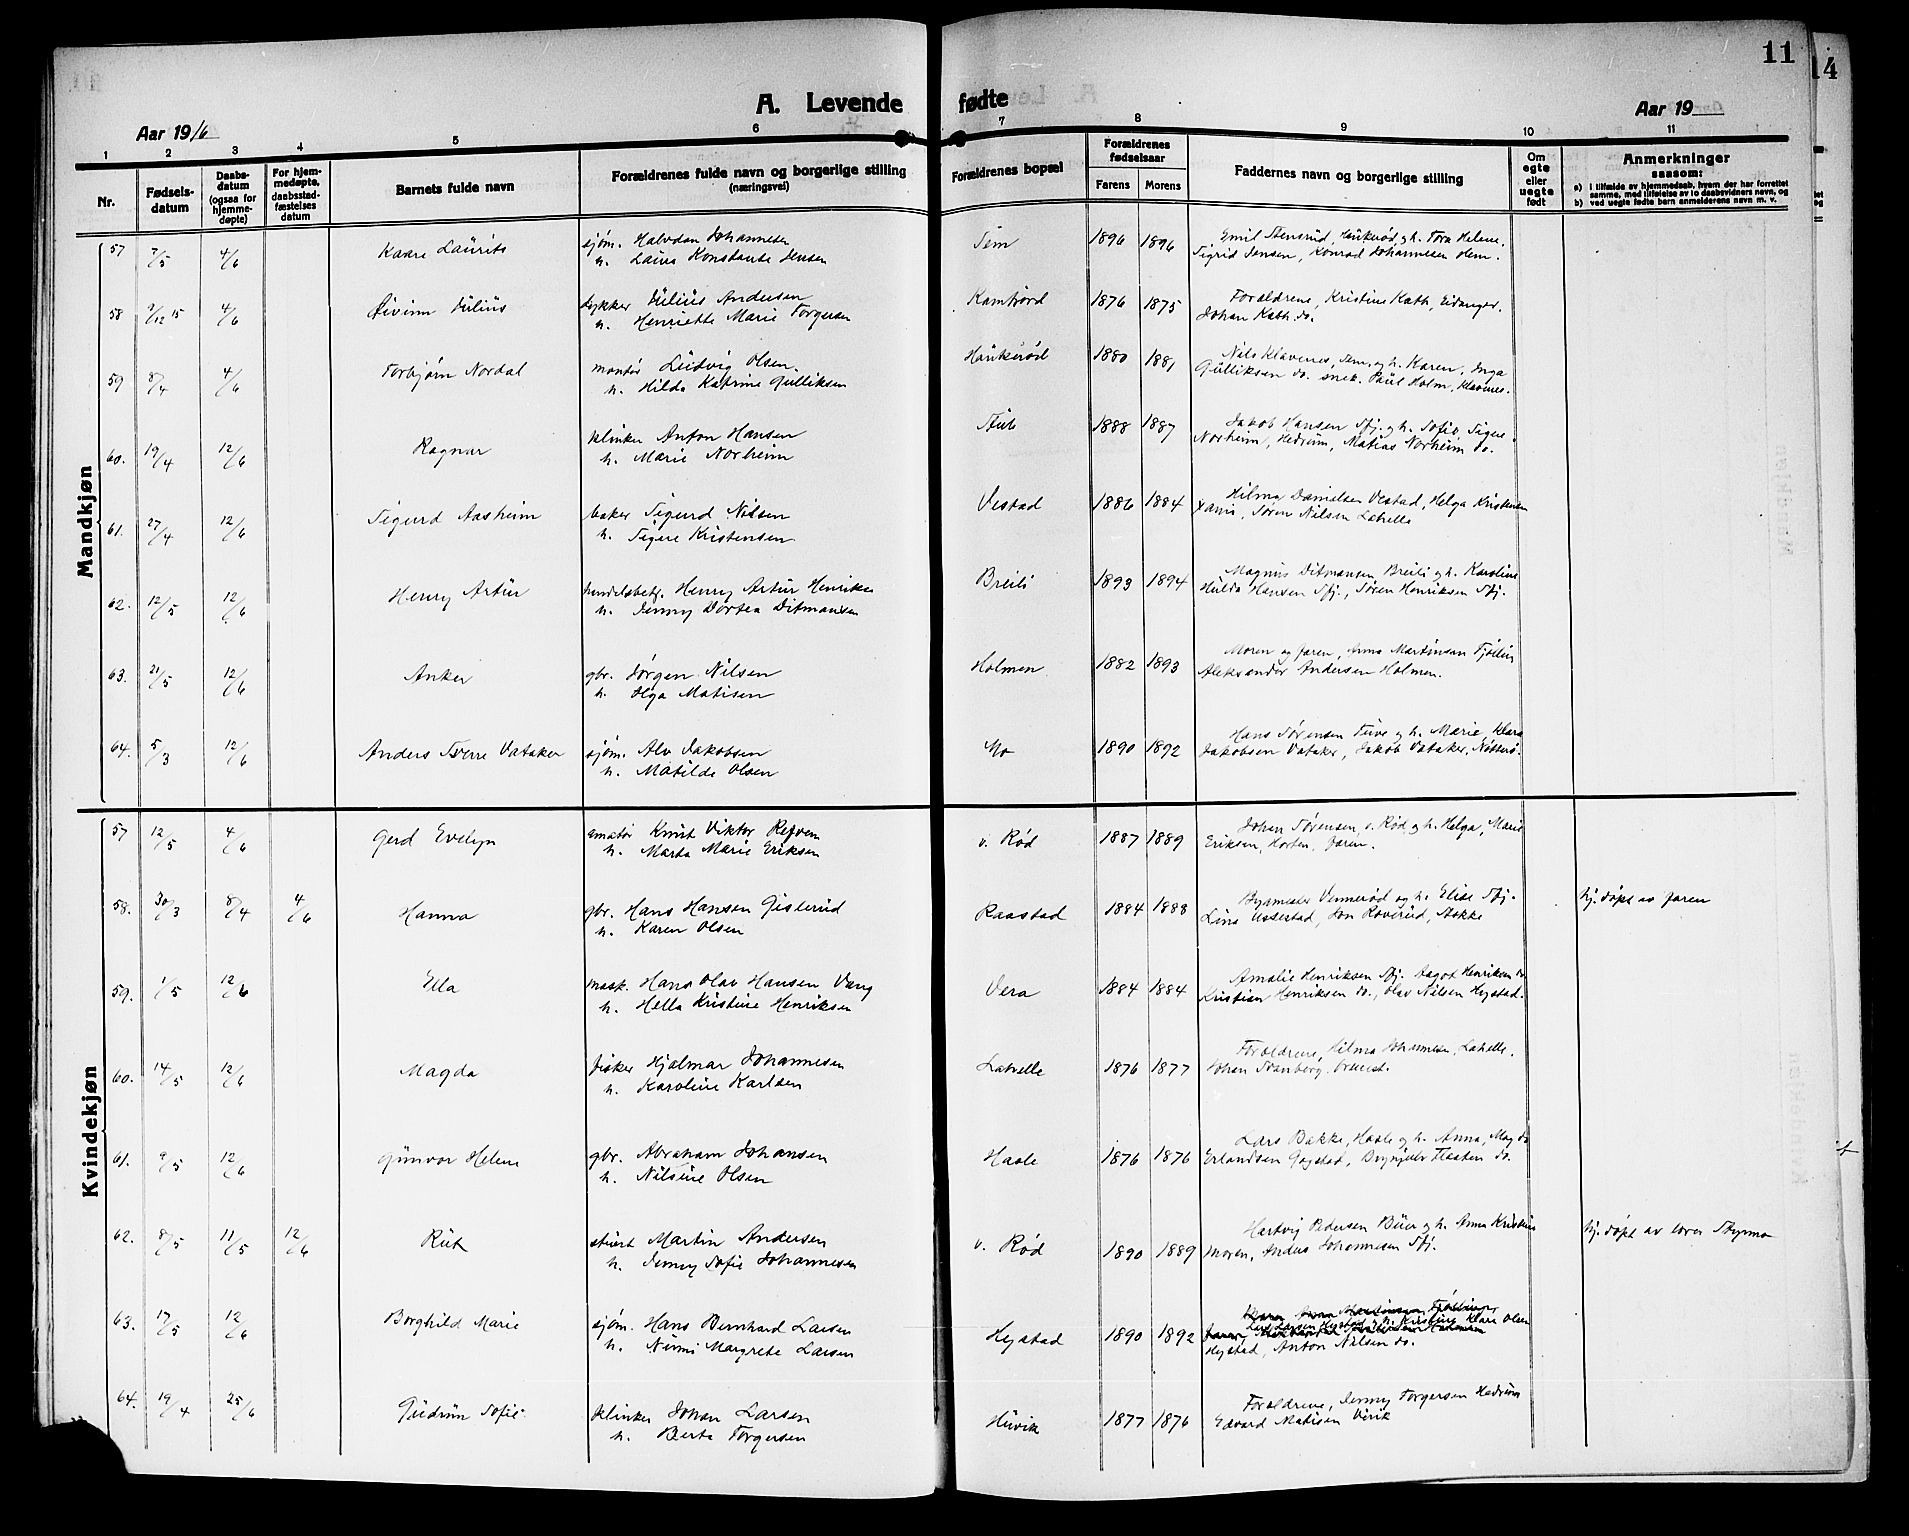 11
14
A. Levende fødte
Aar 1916
Aar 19
1 2 3 4 5 6 7 8 9 10 11
Nr.
Fødsels-
datum
Daabs-
datum
(ogsaa for
hjemme-
døpte)
For hjem-
medøpte,
daabsstad-
fæstelses
datum
Barnets fulde navn
Forældrenes fulde navn og borgerlige stilling
(næringsvei)
Forældrenes bopæl
Forældrenes
fødselsaar
Farens Morens
Faddernes navn og borgerlige stilling
Om
egte
eller
uegte
født
Anmerkninger
saasom:
a) i tilfælde av hjemmedaab, hvem der har forrettet
samme, med tilføielse av to daabsvidners navn, og
b) ved uegte fødte barn anmelderens navn m. v.
Mandkjøn
57 7/5 4/6 Kaare Laurits sjøm. Halvdan Johannesen Tem 1896 1896 Emil Stensrud, Haukerød, g h. Tora Helene,
h. Laura Konstanse Jensen Sigrid Jensen, Konrad Johannesen Hem.
58 9/12 15 4/6 Eivinn Julius dykker Julius Andersen Kamfjord 1876 1875 Foraldrene, Kristine Kath, Eidanger,
h. Henriette Marie Torgersen Johan Kath do.
59 8/4 4/6 Torbjørn Nordal montør Ludvig Olsen Haukerød 1880 1881 Nils Klavenes, Tem, g h. Karen, Inga
h. Hilda Katrine Gulliksen Gulliksen do. snek. Paul Holm, Klavenes.
60. 19/4 12/6 Ragnar klinker Anton Hansen Stub 1888 1887 Jakob Hansen Sfj. g h. Sofie, Signe
h. Marie Norheim Norheim, Hedrum, Matias Norheim do.
61. 27/4 12/6 Sigurd Aasheim baker Sigurd Nilsen Vestad 1886 1884 Hilma Danielsen Vestad, Helga Kristensen
h. Signe Kristensen Søren Nilsen Lahelle
62. 12/5 12/6 Henry Artur handelsbetj. Henry Artur Henriksen Breili 1893 1894 Magnus Ditmansen Breili g h. Karoline
h. Jenny Dortea Ditmansen Hulda Hansen Sfj., Søren Henriksen Sfj.
63. 21/5 12/6 Anker gbr. Jørgen Nilsen Holmen 1882 1893 Moren og faren, Anna Martinsen Fjølling
h. Olga Matisen Aleksander Andersen Holmen.
64. 5/3 12/6 Anders Sverre Vataker sjøm. Alv Jakobsen Mo 1890 1892 Hans Sørensen g h. Marie, Klara
h. Matilde Olsen Jakobsen Vataker, Jakob Vataker, Nøtterø.
Kvindekjøn
57 12/5 4/6 Gerd Evelyn Knut Viktor Refven v. Rød 1887 1889 Johan Sørensen, v. Rød, g h. Helga, Marie
h. Marta Marie Eriksen Eriksen, Horten, faren.
58. 30/3 8/4 4/6 Hanna gbr. Hans Hansen Gisterud Raastad 1884 1888 Bygmester Vennerød og h. Elise Sfj. hj. døpt av faren
h. Karen Olsen Lina Ussestad, Jon Roverud, Stokke
59. 1/5 12/6 Ella mask. Hans Olav Hansen Vang Vera 1884 1884 Amalie Henriksen Sfj. Aagot Henriksen do
h. Hella Kristine Henriksen Kristian Henriksen do., Olav Nilsen Hystad.
60. 14/5 12/6 Magda fisker Hjalmar Johannesen Lahelle 1876 1877 Foraldrene, Hilma Johannesen, Lahelle,
h. Karoline Karlsen Johan Svanberg
61. 9/5 12/6 Gunvor Helene gbr. Abraham Johansen Hasle 1876 1876 Lars Bakke, Hasle g h. Anna, Mag do
h. Nilsine Olsen Erlandsen Gogstad, Brynjulv Flaaten do.
62. 8/5 11/5 12/6 Rut stuert Martin Andersen v. Rød 1890 1889 Hartvig Pedersen Buer g h. Anna Kristine hj. døpt av lærer
h. Jenny Sofie Johannesen moren, Anders Johannesen Sfj.
63. 17/5 12/6 Borghild Marie sjøm. Hans Bernhard Larsen Hystad 1890 1892 Lars Larsen Hystad g h. Kristine, Klara Olsen
h. Nimi Margrete Larsen Hystad, Anton Nilsen do.
64. 19/4 25/6 Gudrun Sofie klinker Johan Larsen Huvik 1877 1876 Foraldrene, Jenny Torgersen Hedrum
h. Berta Torgersen Edvard Matisen Virik